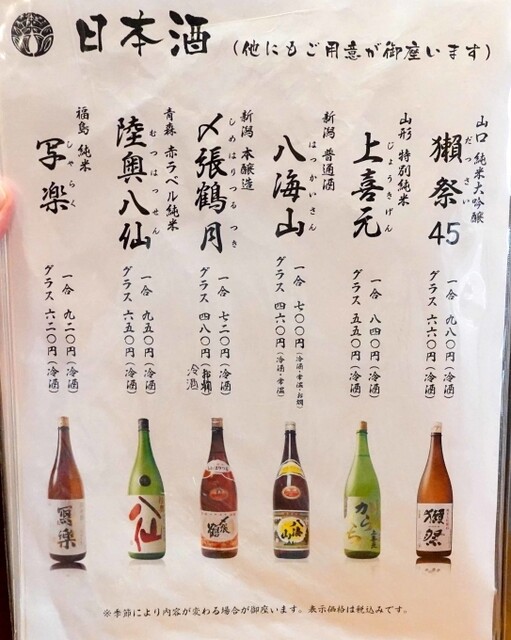 日本酒 (他にもご用意が御座います)
山口 純米大吟醸
獺祭 45
だっさい
一合 九八〇円(冷酒)
グラス 六六〇円(冷酒)
山形 特別純米
上喜元
じょうきげん
一合 八四〇円(冷酒)
グラス 五五〇円(冷酒)
新潟 普通酒
八海山
はっかいさん
一合 七〇〇円(冷酒・常温・お燗)
グラス 四六〇円(冷酒・常温)
新潟 本醸造
〆張鶴 月
しめはりつる つき
一合 七二〇円(冷酒)
グラス 四八〇円(お燗)
冷酒
青森 赤ラベル純米
陸奥八仙
むつはっせん
一合 九五〇円(冷酒)
グラス 六五〇円(冷酒)
福島 純米
写楽
しゃらく
一合 九二〇円(冷酒)
グラス 六二〇円(冷酒)
寫樂
八仙
〆張鶴
八海山
からくち
獺祭
※季節により内容が変わる場合が御座います。表示価格は税込みです。